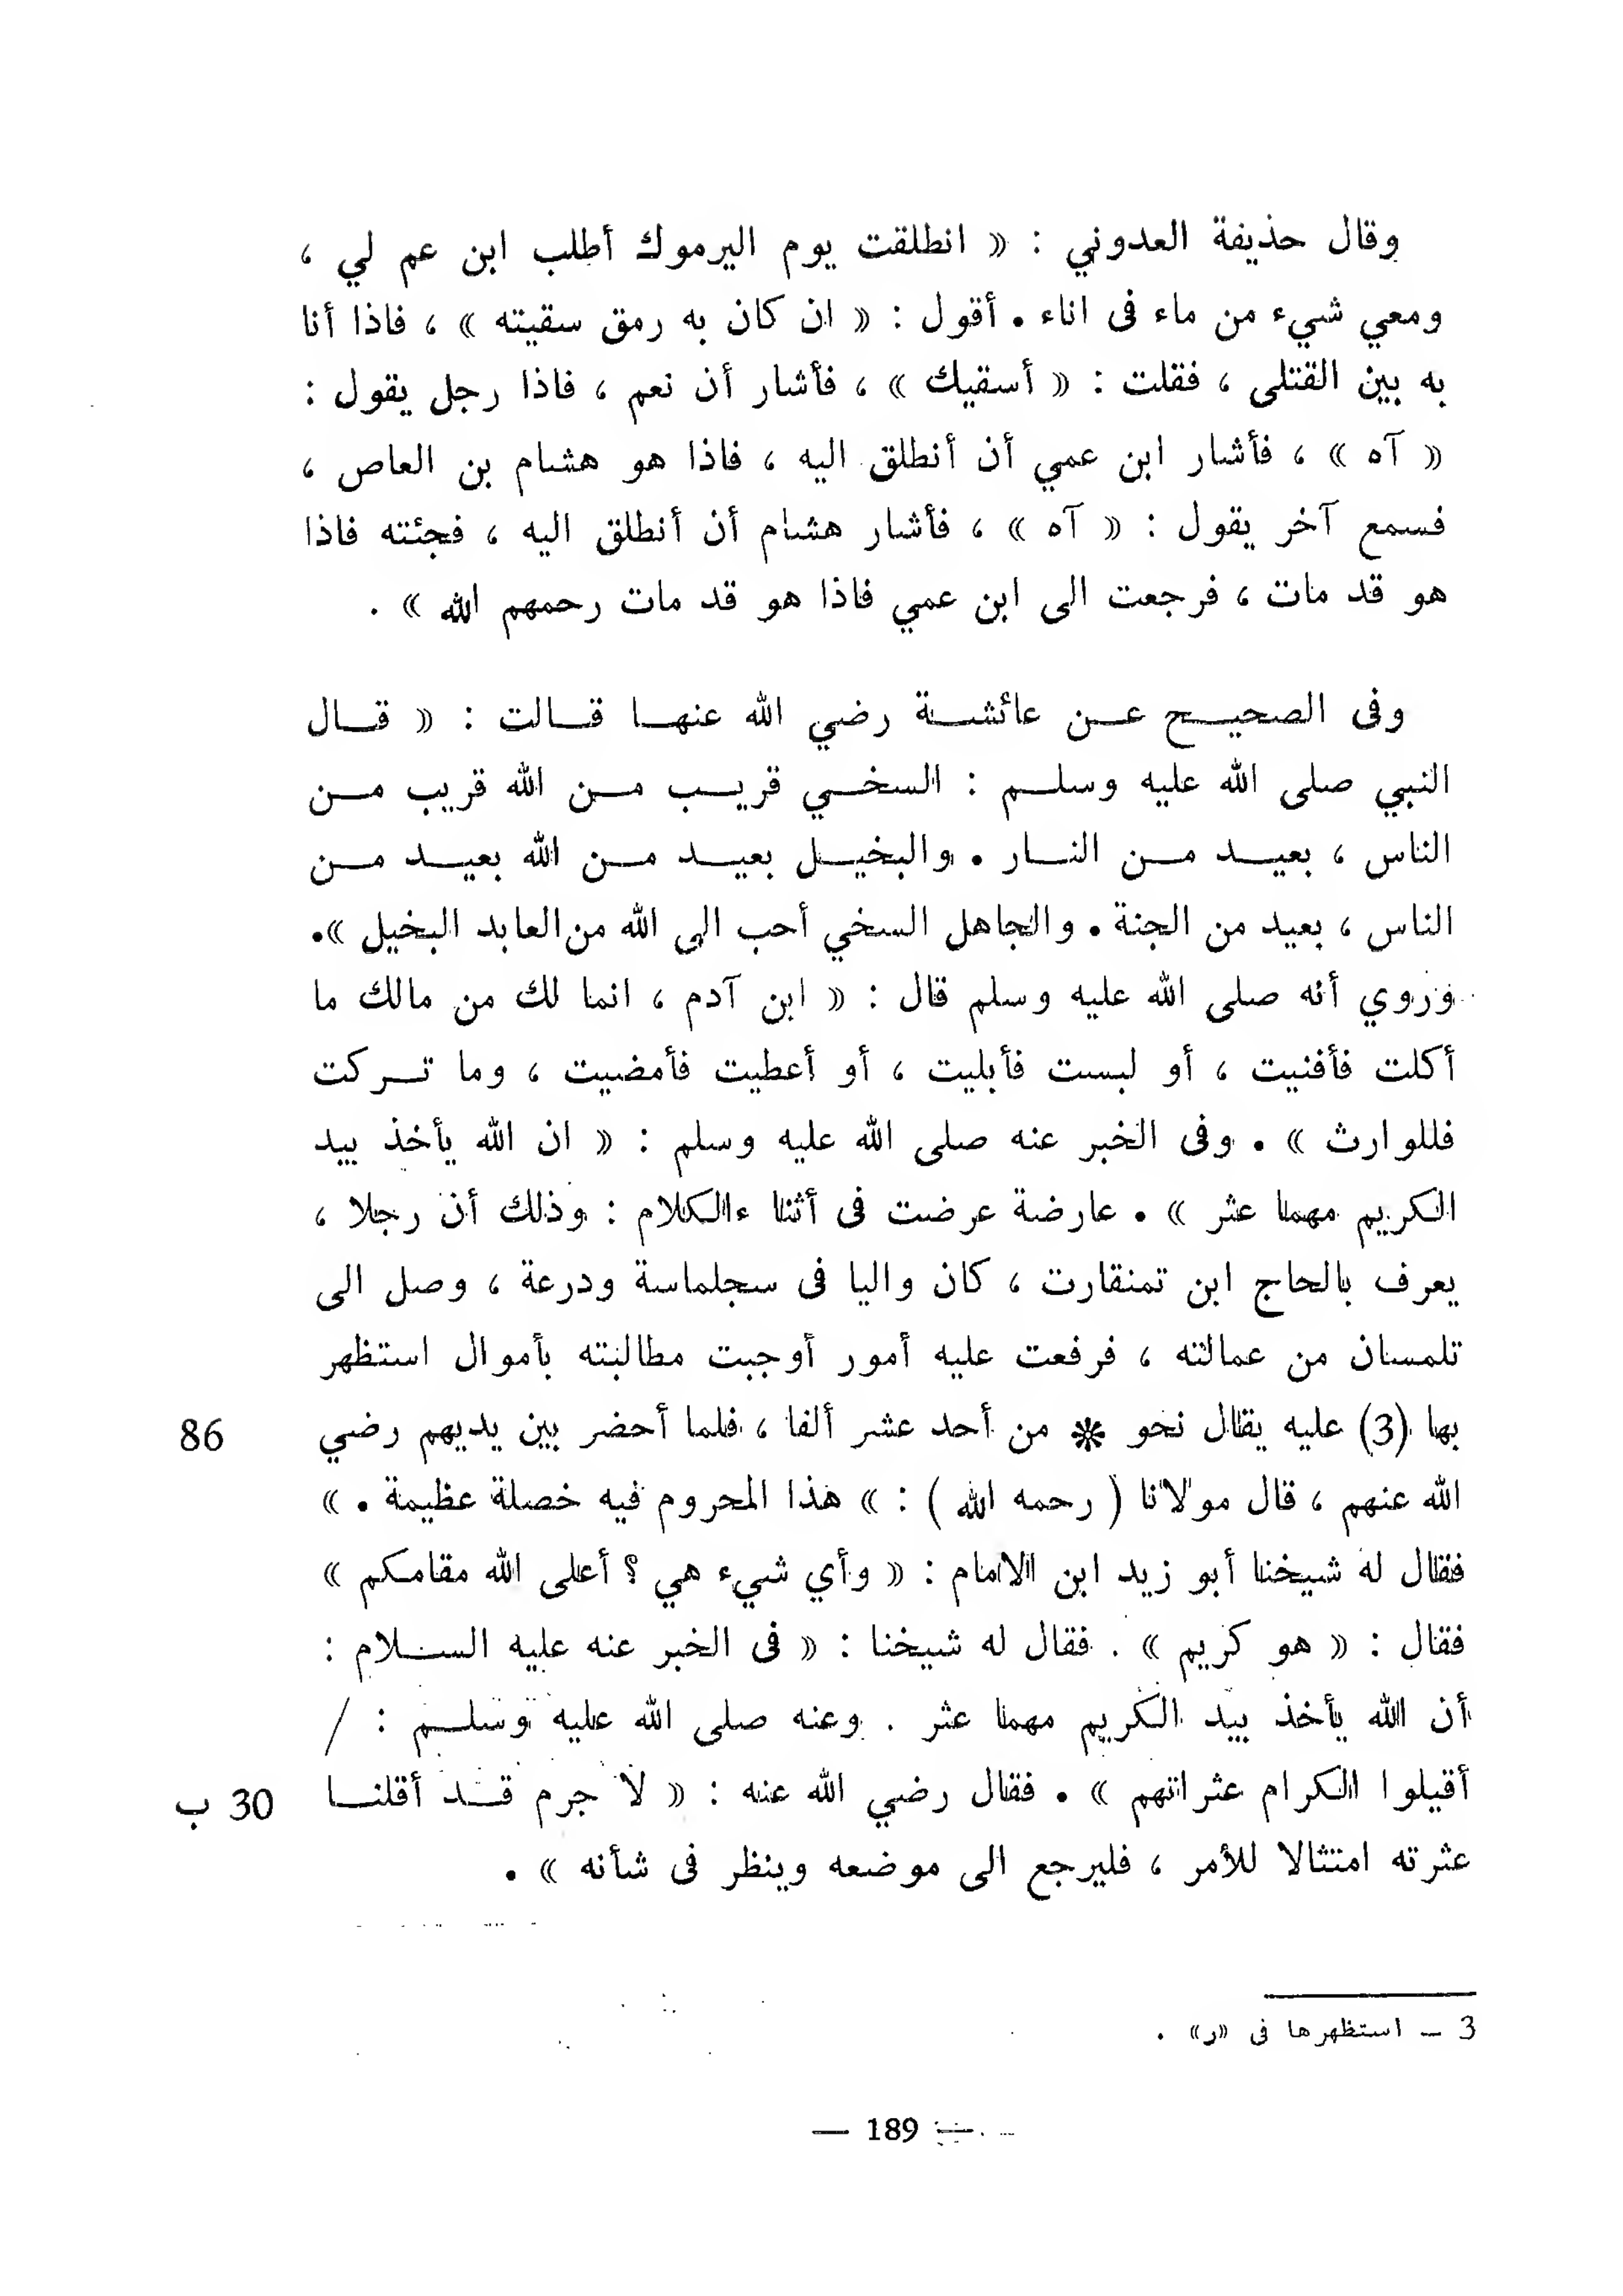 وقال حذيفة العدوني : « انطلقت يوم اليرموك أطلب ابن عم لي ،
ومعي شيء من ماء فى اناء . أقول : « ان كان به رمق سقيته » ، فاذا أنا
به بين القتلى ، فقلت : « أسقيك » ، فأشار أن نعم ، فاذا رجل يقول :
« آه » ، فأشار ابن عمي أن أنطلق اليه ، فاذا هو هشام بن العاص ،
فسمع آخر يقول : « آه » ، فأشار هشام أن أنطلق اليه ، فجئته فاذا
هو قد مات ، فرجعت الى ابن عمي فاذا هو قد مات رحمهم الله » .
وفى الصحيح عن عائشة رضي الله عنها قالت : « قال
النبي صلى الله عليه وسلم : السخي قريب من الله قريب من
الناس ، بعيد من النار . والبخيل بعيد من الله بعيد من
الناس ، بعيد من الجنة . والجاهل السخي أحب الى الله من العابد البخيل ».
وروي أنه صلى الله عليه وسلم قال : « ابن آدم ، انما لك من مالك ما
أكلت فأفنيت ، أو لبست فأبليت ، أو أعطيت فأمضيت ، وما تركت
فللوارث » . وفى الخبر عنه صلى الله عليه وسلم : « ان الله يأخذ بيد
الكريم مهما عثر » . عارضة عرضت فى أثنا ءالكلام : وذلك أن رجلا ،
يعرف بالحاج ابن تمنقارت ، كان واليا فى سجلماسة ودرعة ، وصل الى
تلمسان من عمالته ، فرفعت عليه أمور أوجبت مطالبته بأموال استظهر
بها (3) عليه يقال نحو * من أحد عشر ألفا ، فلما أحضر بين يديهم رضي 86
الله عنهم ، قال مولانا ( رحمه الله ) : » هذا المحروم فيه خصلة عظيمة . »
فقال له شيخنا أبو زيد ابن الامام : « وأي شيء هي ؟ أعلى الله مقامكم »
فقال : « هو كريم » . فقال له شيخنا : « فى الخبر عنه عليه السلام :
أن الله يأخذ بيد الكريم مهما عثر . وعنه صلى الله عليه وسلم : /
أقيلوا الكرام عثراتهم » . فقال رضي الله عنه : « لا جرم قد أقلنا 30 ب
عثرته امتثالا للأمر ، فليرجع الى موضعه وينظر فى شأنه » .
3 – استظهرها فى «ر» .
— 189 —